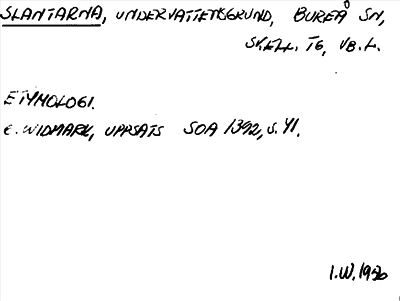 SLANTARNA, UNDERVATTENSGRUND, BUREÅ SN,
SKELL. TG, VB. L.
ETYMOLOGI.
E. WIDMARK, UPPSATS SOA 1392, S. 41.
I.W. 1956